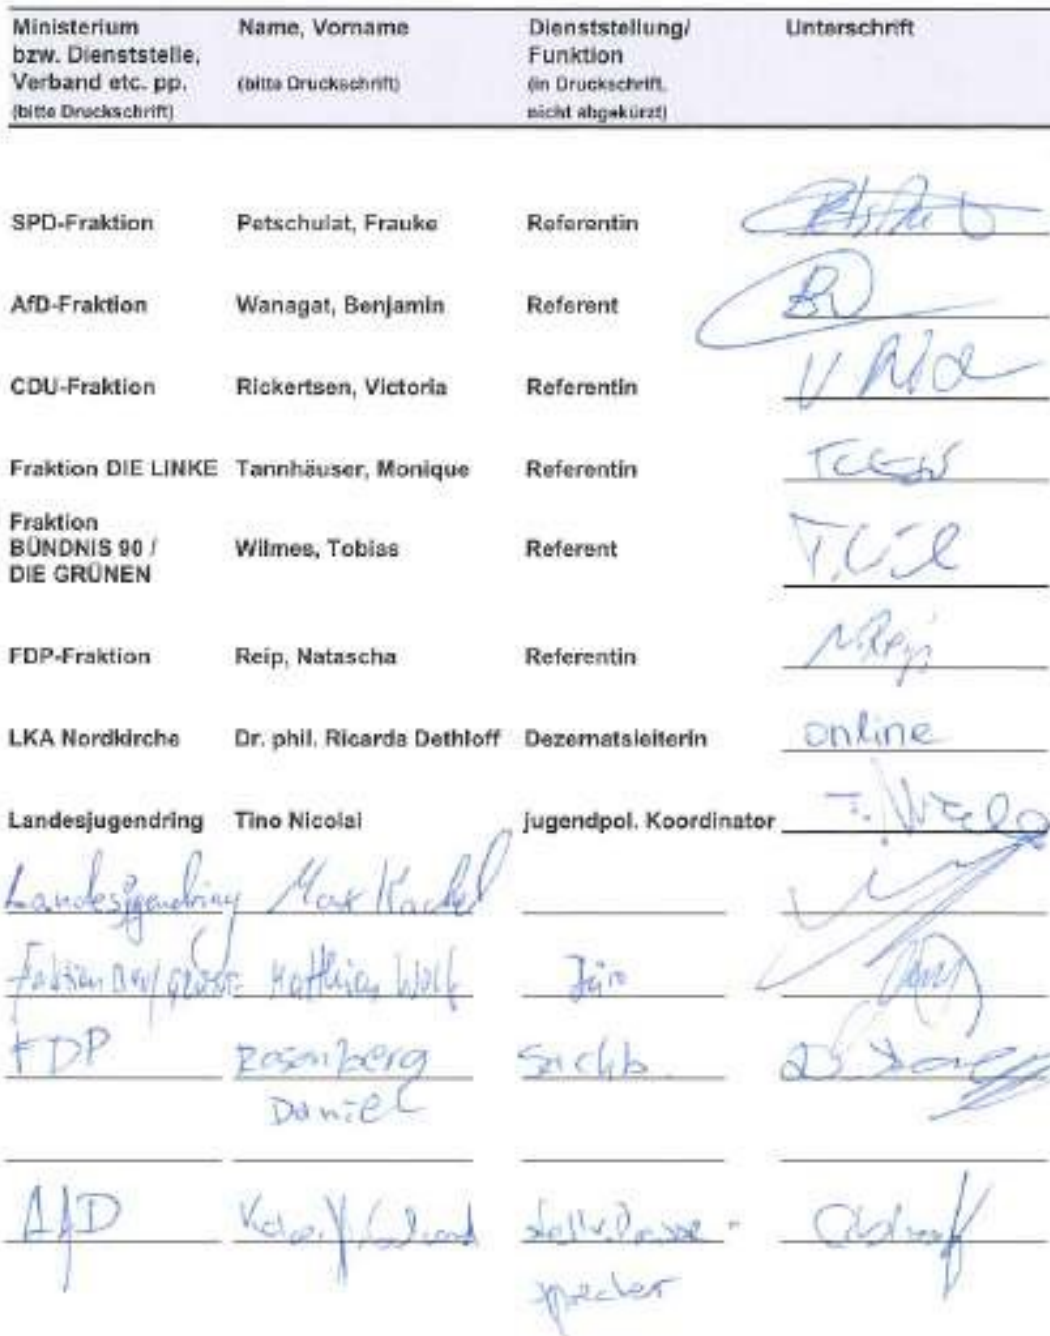 Ministerium bzw. Dienststelle, Verband etc. pp. (bitte Druckschrift)
Name, Vorname (bitte Druckschrift)
Dienststellung/ Funktion (in Druckschrift, nicht abgekürzt)
Unterschrift
SPD-Fraktion Petschulat, Frauke Referentin
AfD-Fraktion Wanagat, Benjamin Referent
CDU-Fraktion Rickertsen, Victoria Referentin
Fraktion DIE LINKE Tannhäuser, Monique Referentin
Fraktion
BÜNDNIS 90 / Wilmes, Tobias Referent
DIE GRÜNEN
FDP-Fraktion Reip, Natascha Referentin N. Reip
LKA Nordkirche Dr. phil. Ricarda Dethloff Dezernatsleiterin online
Landesjugendring Tino Nicolai jugendpol. Koordinator
Landesjugendring Max
Fraktion Matthias Wolf
FDP Rosenberg Sachb.
Daniel
AfD stellv. Presse-
sprecher